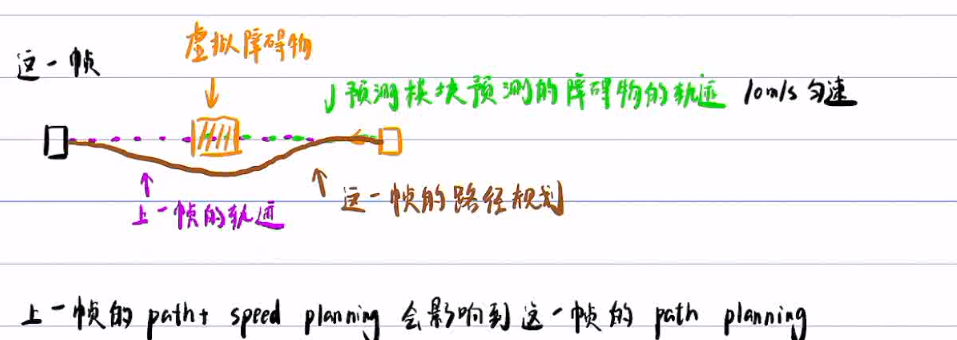 这一帧
虚拟障碍物
预测模块预测的障碍物的轨迹 10m/s 匀速
上一帧的轨迹
这一帧的路径规划
上一帧的 path+ speed planning 会影响到这一帧的 path planning